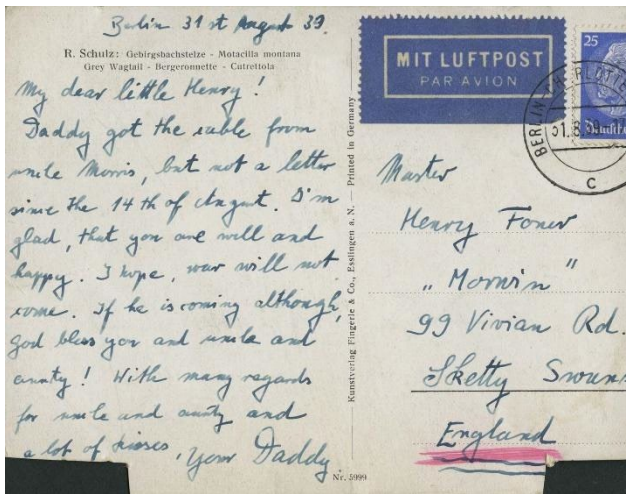 Berlin 31st August 39.
R. Schulz: Gebirgsbachstelze - Motacilla montana
Grey Wagtail - Bergeronnette - Cutrettola
My dear little Henry!
Daddy got the cable from
uncle Morris, but not a letter
since the 14th of August. I'm
glad, that you are well and
happy. I hope, war will not
come. If he is coming although,
god bless you and uncle and
aunty! With many regards
for uncle and aunty and
a lot of kisses, your Daddy
Nr. 5999
Kunstverlag Fingerle & Co., Esslingen a. N. — Printed in Germany
MIT LUFTPOST
PAR AVION
25
BERLIN-CHARLOTTE
31.8.39
C
Master
Henry Foner
„Morwin"
99 Vivian Rd.
Sketty Swans
England